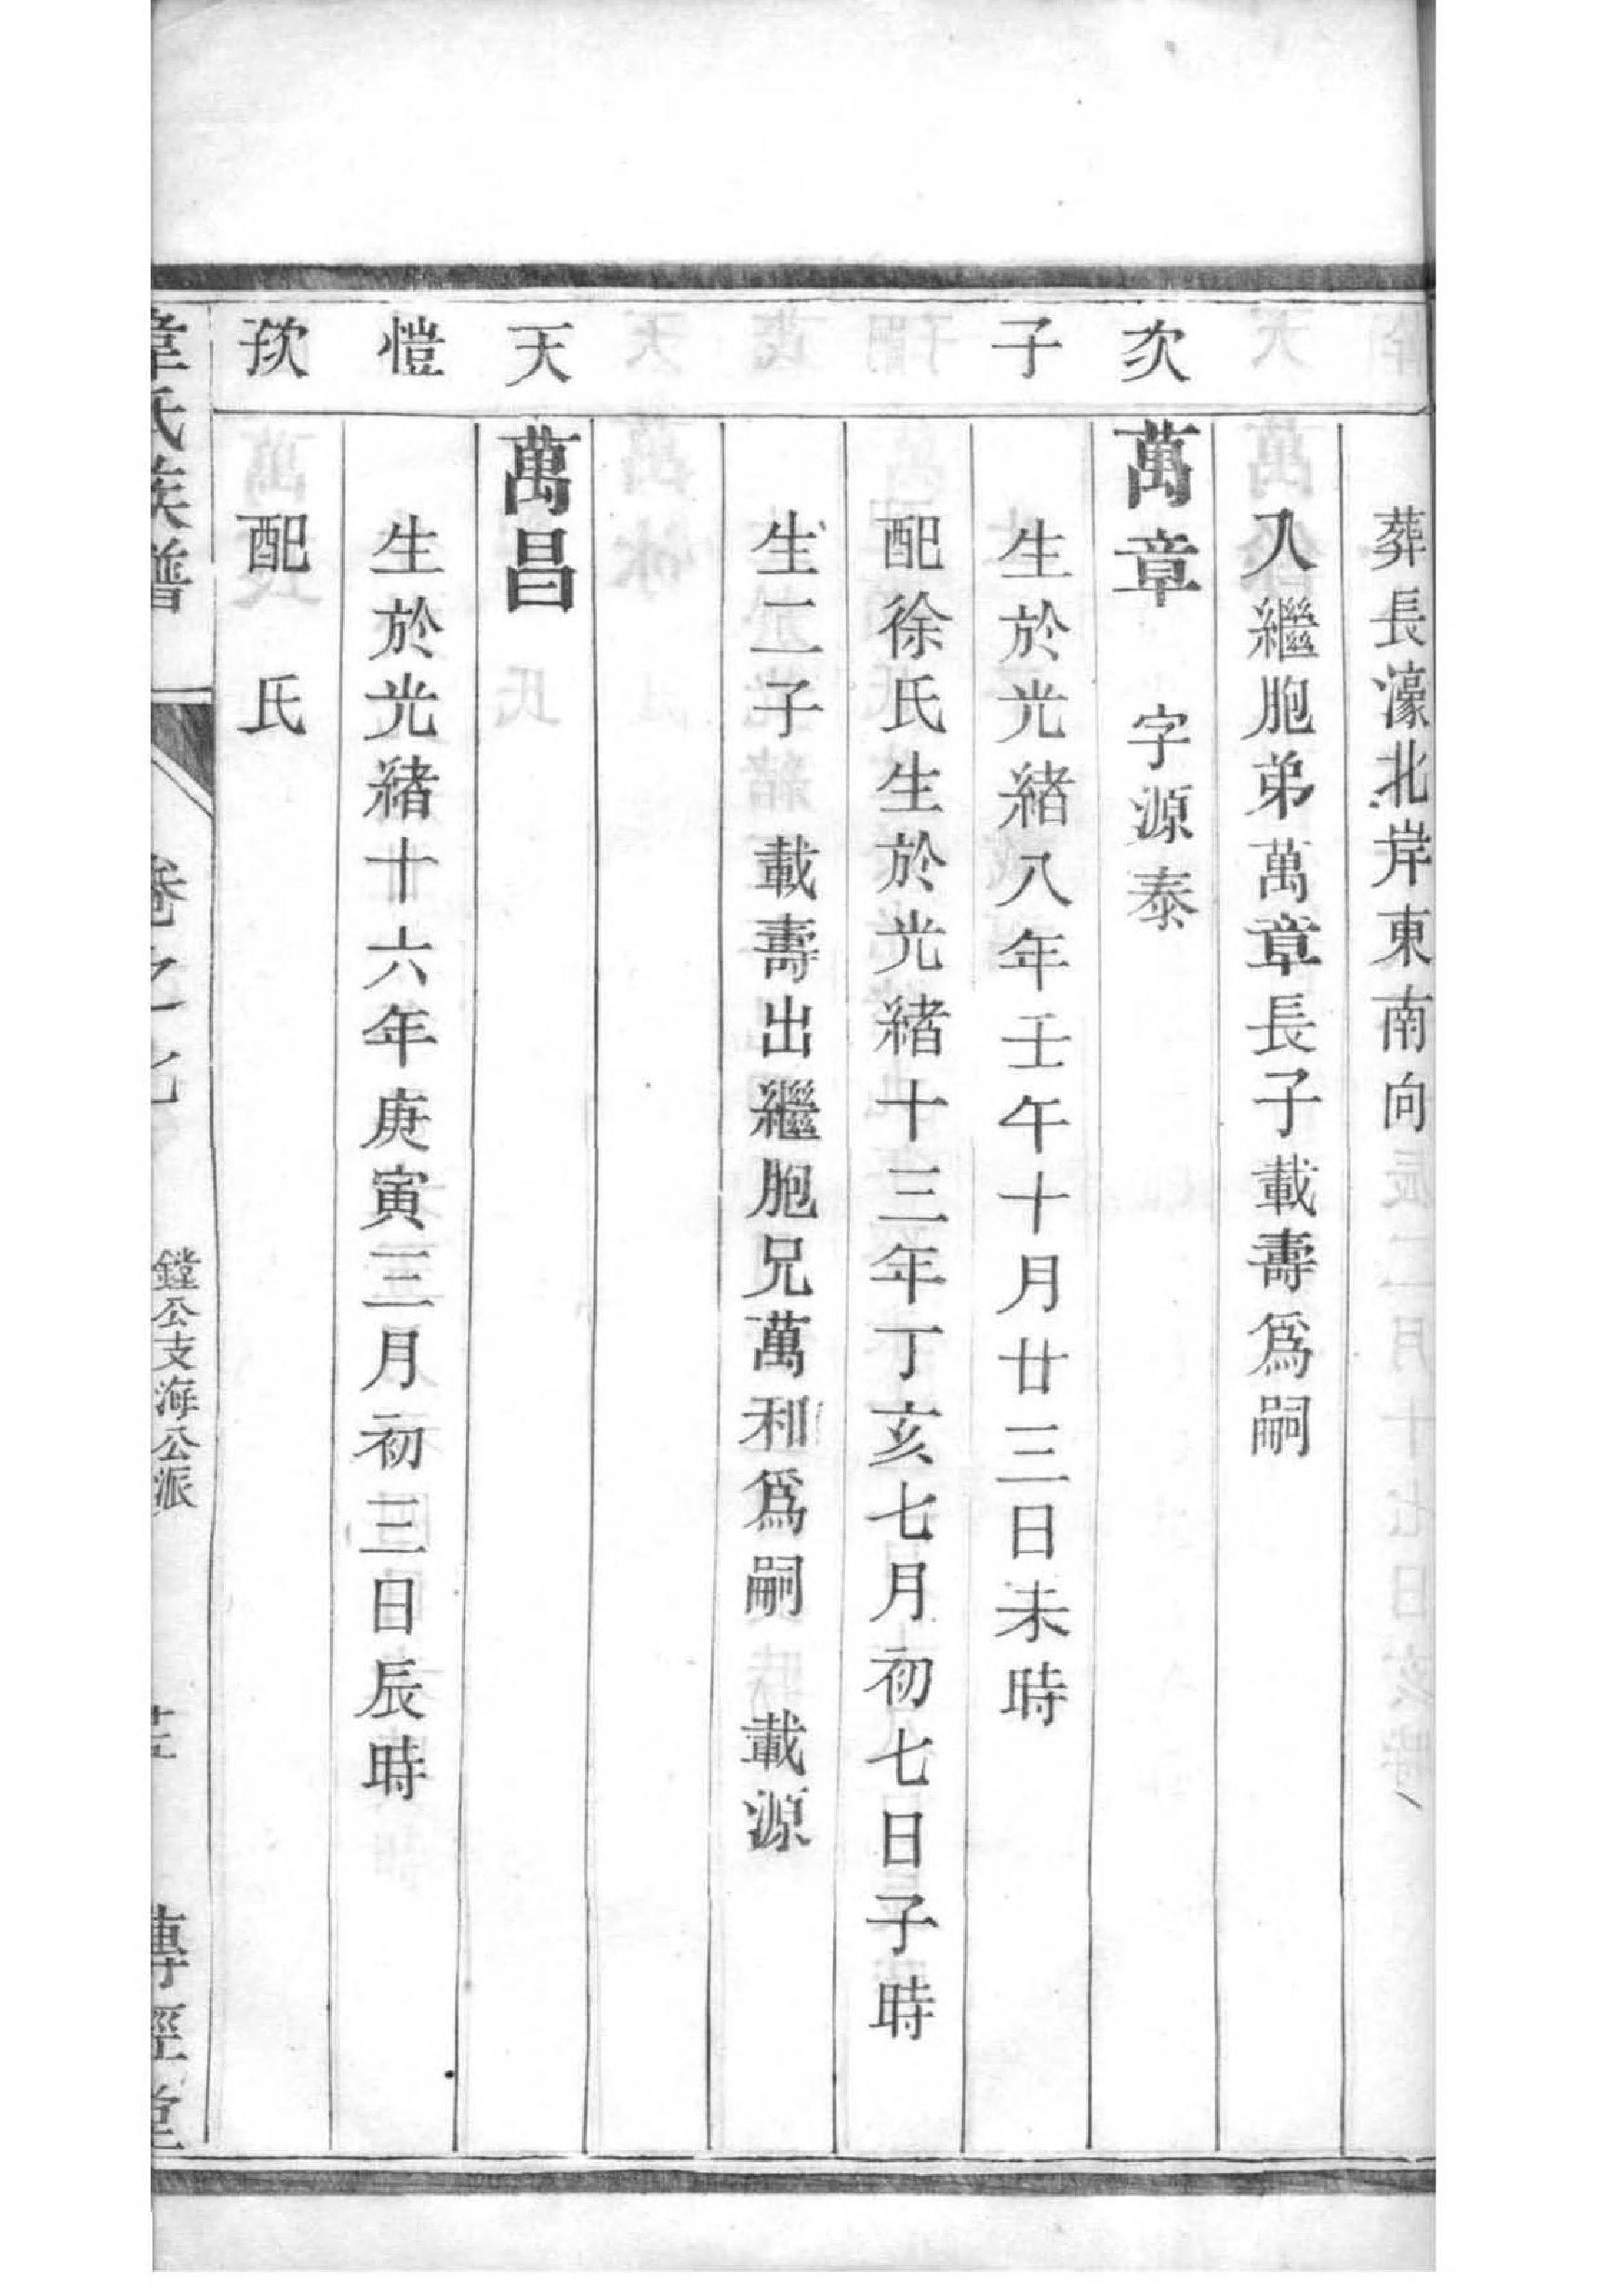 葬長濠北岸東南向
入繼胞弟萬章長子載壽爲嗣
次
萬章 字源泰
子
生於光緒八年壬午十月廿三日未時
配徐氏生於光緒十三年丁亥七月初七日子時
生二子 載壽出繼胞兄萬和爲嗣 載源
天
萬昌
愷
生於光緒十六年庚寅三月初三日辰時
配 氏
氏族譜
卷之
鏜公支海公派
傳經堂